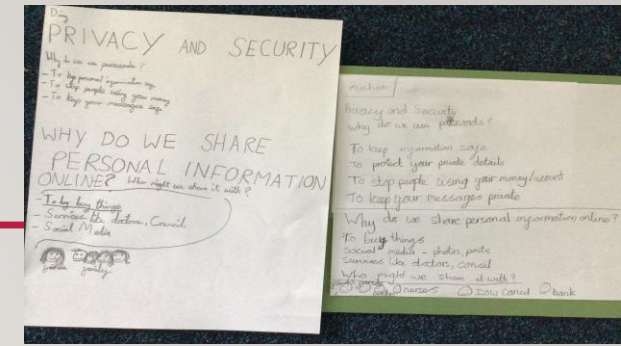 PRIVACY AND SECURITY
Why do we use passwords?
- To keep personal information
- To stop people using your money
- To keep your messages safe
WHY DO WE SHARE
PERSONAL INFORMATION
ONLINE? Who might we share it with?
- To buy things
- Services like doctors, Council
- Social Media
family
Privacy and Security
Why do we use passwords?
To keep information safe
To protect your private details
To stop people using your money/account
To keep your messages private
Why do we share personal information online?
To buy things
social media - photos, posts
services like doctors, concal
Who might we share it with?
nursers IOW Concal bank